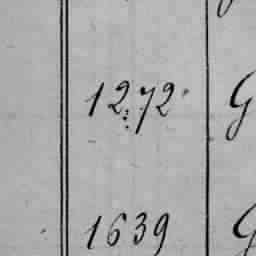 1272 G
1639 G